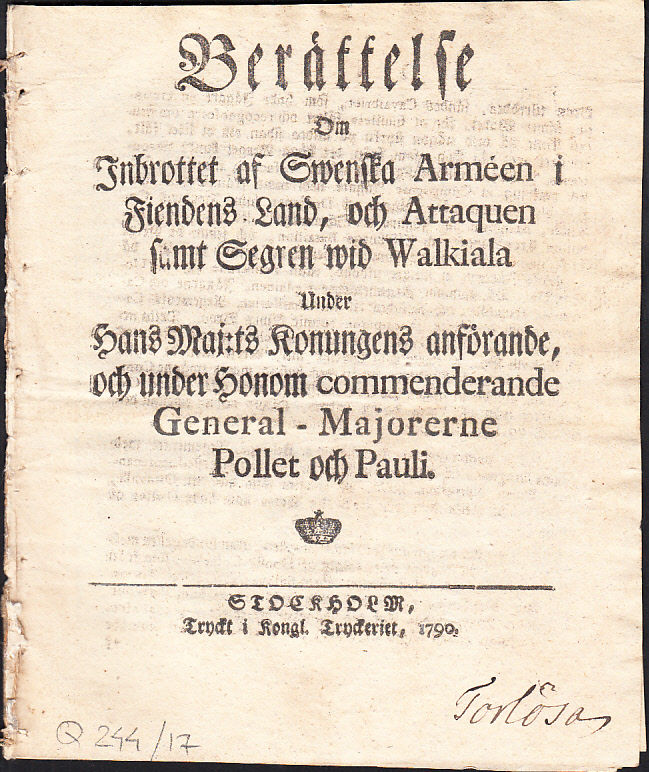 Berättelse
Om
Inbrottet af Swenska Arméen i
Fiendens Land, och Attaquen
samt Segren wid Walkiala
Under
Hans Maj:ts Konungens anförande,
och under Honom commenderande
General - Majorerne
Pollet och Pauli.
STOCKHOLM,
Tryckt i Kongl. Tryckeriet, 1790.
Torlösa
Q 244/17